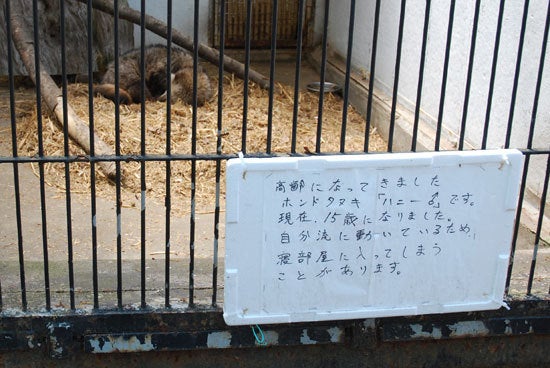 高齢になってきました
ホンドタヌキ「ハニー♂」です。
現在、15歳になりました。
自分流に動いているため、
寝部屋に入ってしまう
ことがあります。